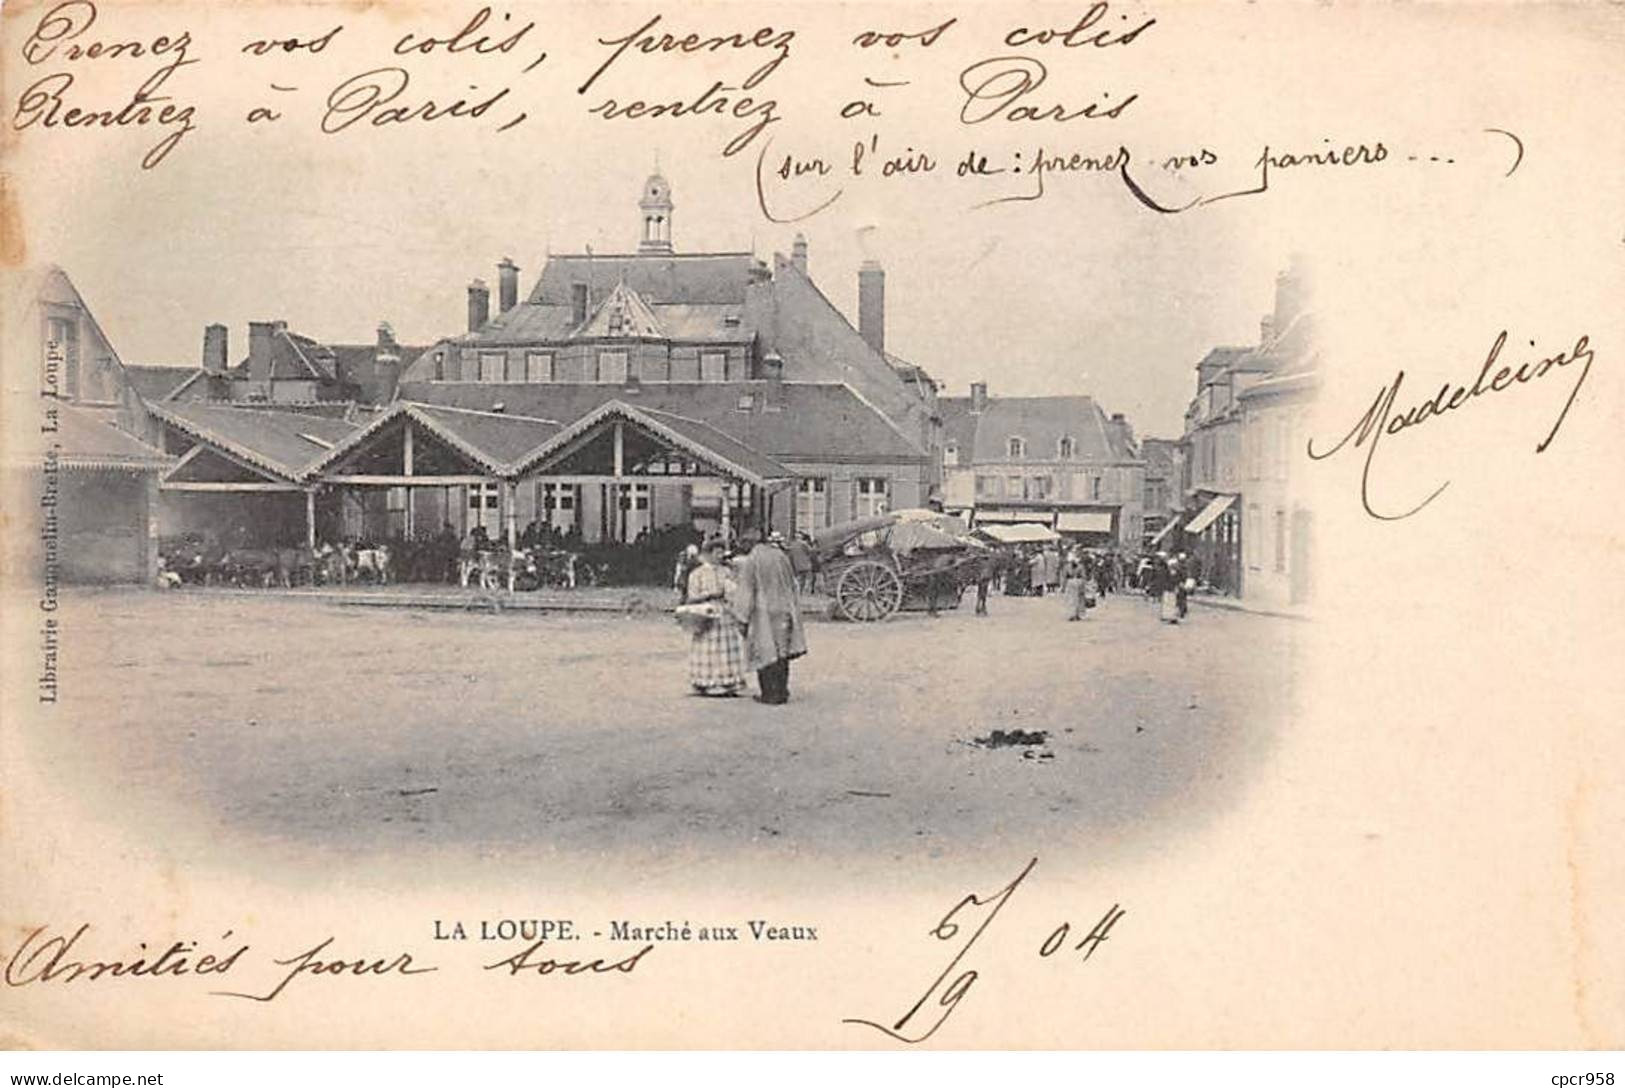 Prenez vos colis, prenez vos colis
Rentrez à Paris, rentrez à Paris
(sur l'air de : prenez vos paniers ... )
Madeleine
Librairie Gauquelin-Brette, La Loupe
LA LOUPE. - Marché aux Veaux
6/9 04
Amitiés pour tous
delcampe.net
cpcr958